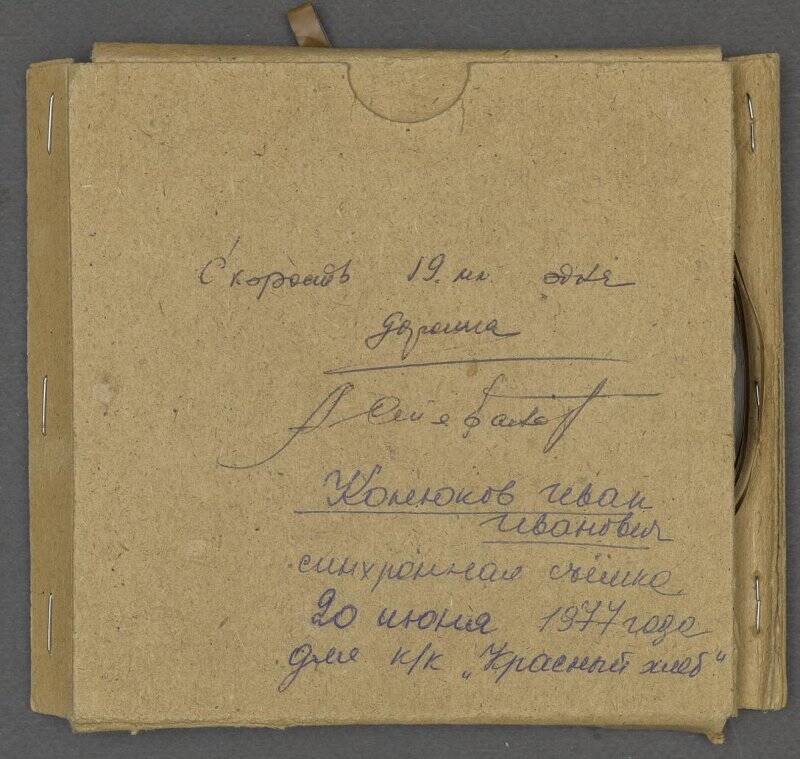 Скорость 19. мм. одна
дорожка
Колюков Иван
Иванович
синхронная съёмка
20 июня 1977 года
для к/к "Красный хлеб"